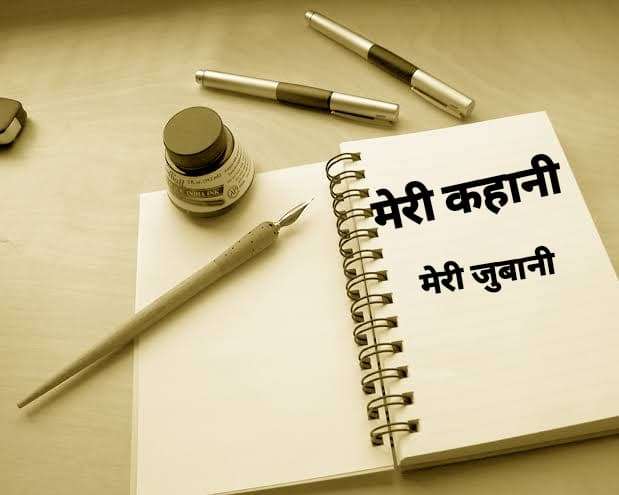 INDIA INK
मेरी कहानी
मेरी जुबानी